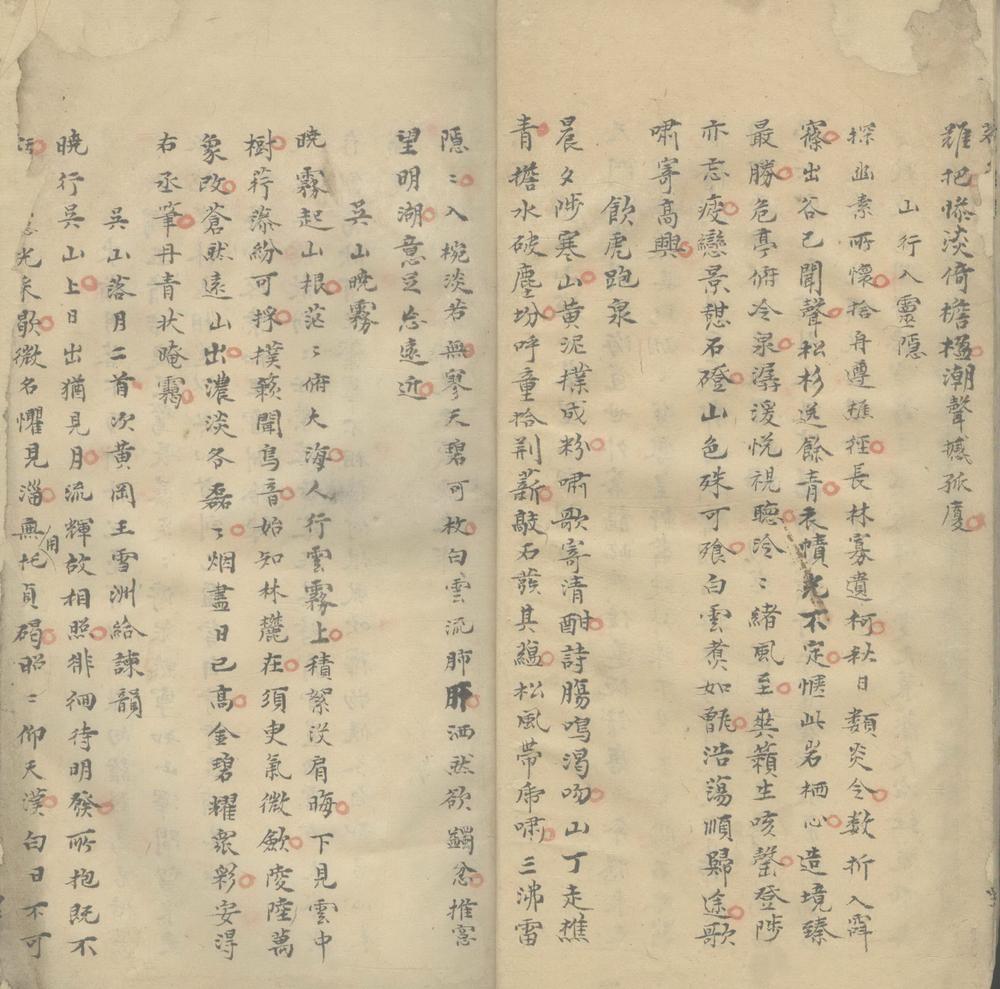 難把慘淡倚檐楹潮聲撼孤廈
山行入靈隱
探幽素所懷捨舟遵樵徑長林寡遺柯秋日類炎令数折入霏
寮出谷已聞聲松杉逃餘青衣幘光不定愜此岩栖心造境臻
最勝危亭俯冷泉潺湲悅視聽泠〻緒風至爽籟生咳磬登陟
亦忘疲戀景憇石磴山色殊可飡白雲煑如甑浩蕩順歸途歌
嘯寄高興
飲虎跑泉
晨夕陟寒山黃泥撲成粉嘯歌寄清酣詩腸鳴渴吻山丁走樵
青擔水破塵坌呼童拾荆薪敲石發其緼松風帶席嘯三沸雷
隱〻入椀淡若無寥天碧可枚白雲流肺肝洒然欲蠲忿推窓
望明湖意足忘遠近
吳山曉霧
曉霧起山根茫〻俯大海人行雲霧上積絮沒肩晦下見雲中
樹荇藻紛可採撲簌聞鳥音始知林麓在須臾氣微歛陵陸萬
象改蒼然遠山出濃淡各磊〻烟盡日已高金碧耀衆彩安得
右丞筆丹青狀晻靄
吳山落月二首次黃岡王雪洲給諫韻
曉行吳山上日出猶見月流輝故相照徘徊待明發所抱既不
光采歇微名懼見淄無用托貞碣昭〻仰天漢白日不可